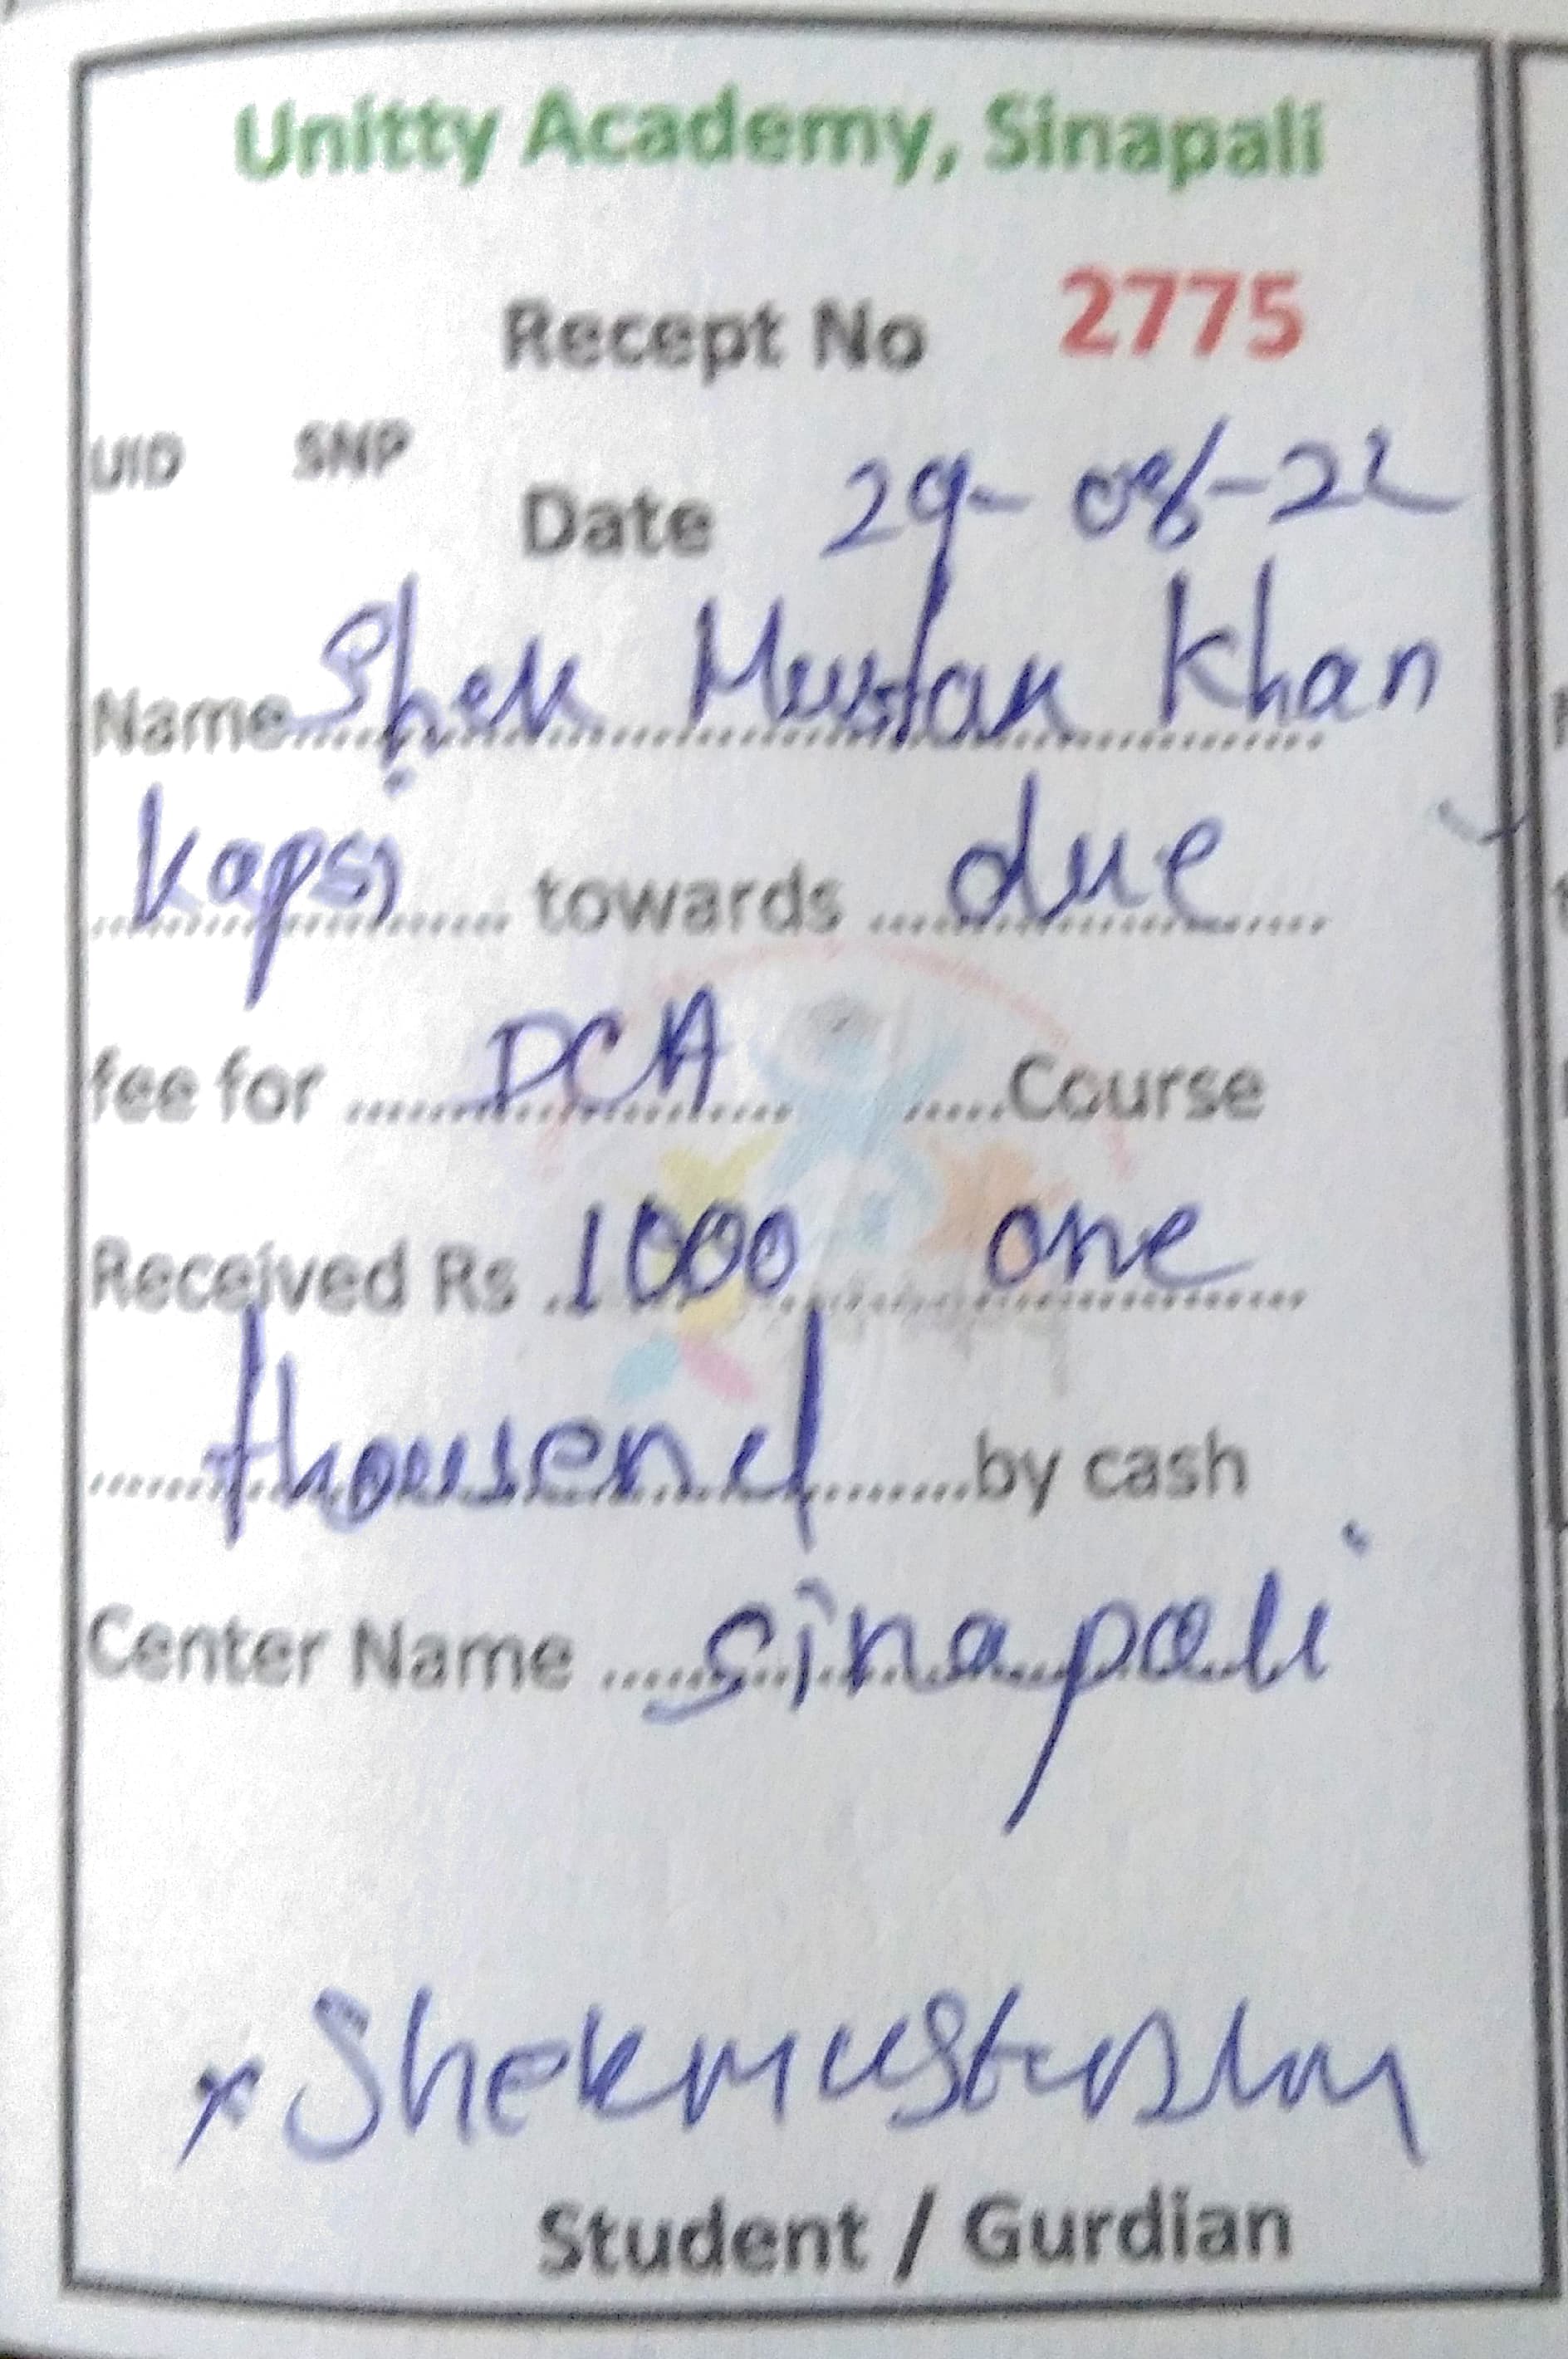 Unitty Academy, Sinapali
Recept No 2775
UID SNP
Date 29-08-22
Name Shek Mustak Khan
Kapsi towards due
fee for DCA Course
Received Rs 1000 one
thousend by cash
Center Name Sinapali
x Shekmustak
Student / Gurdian